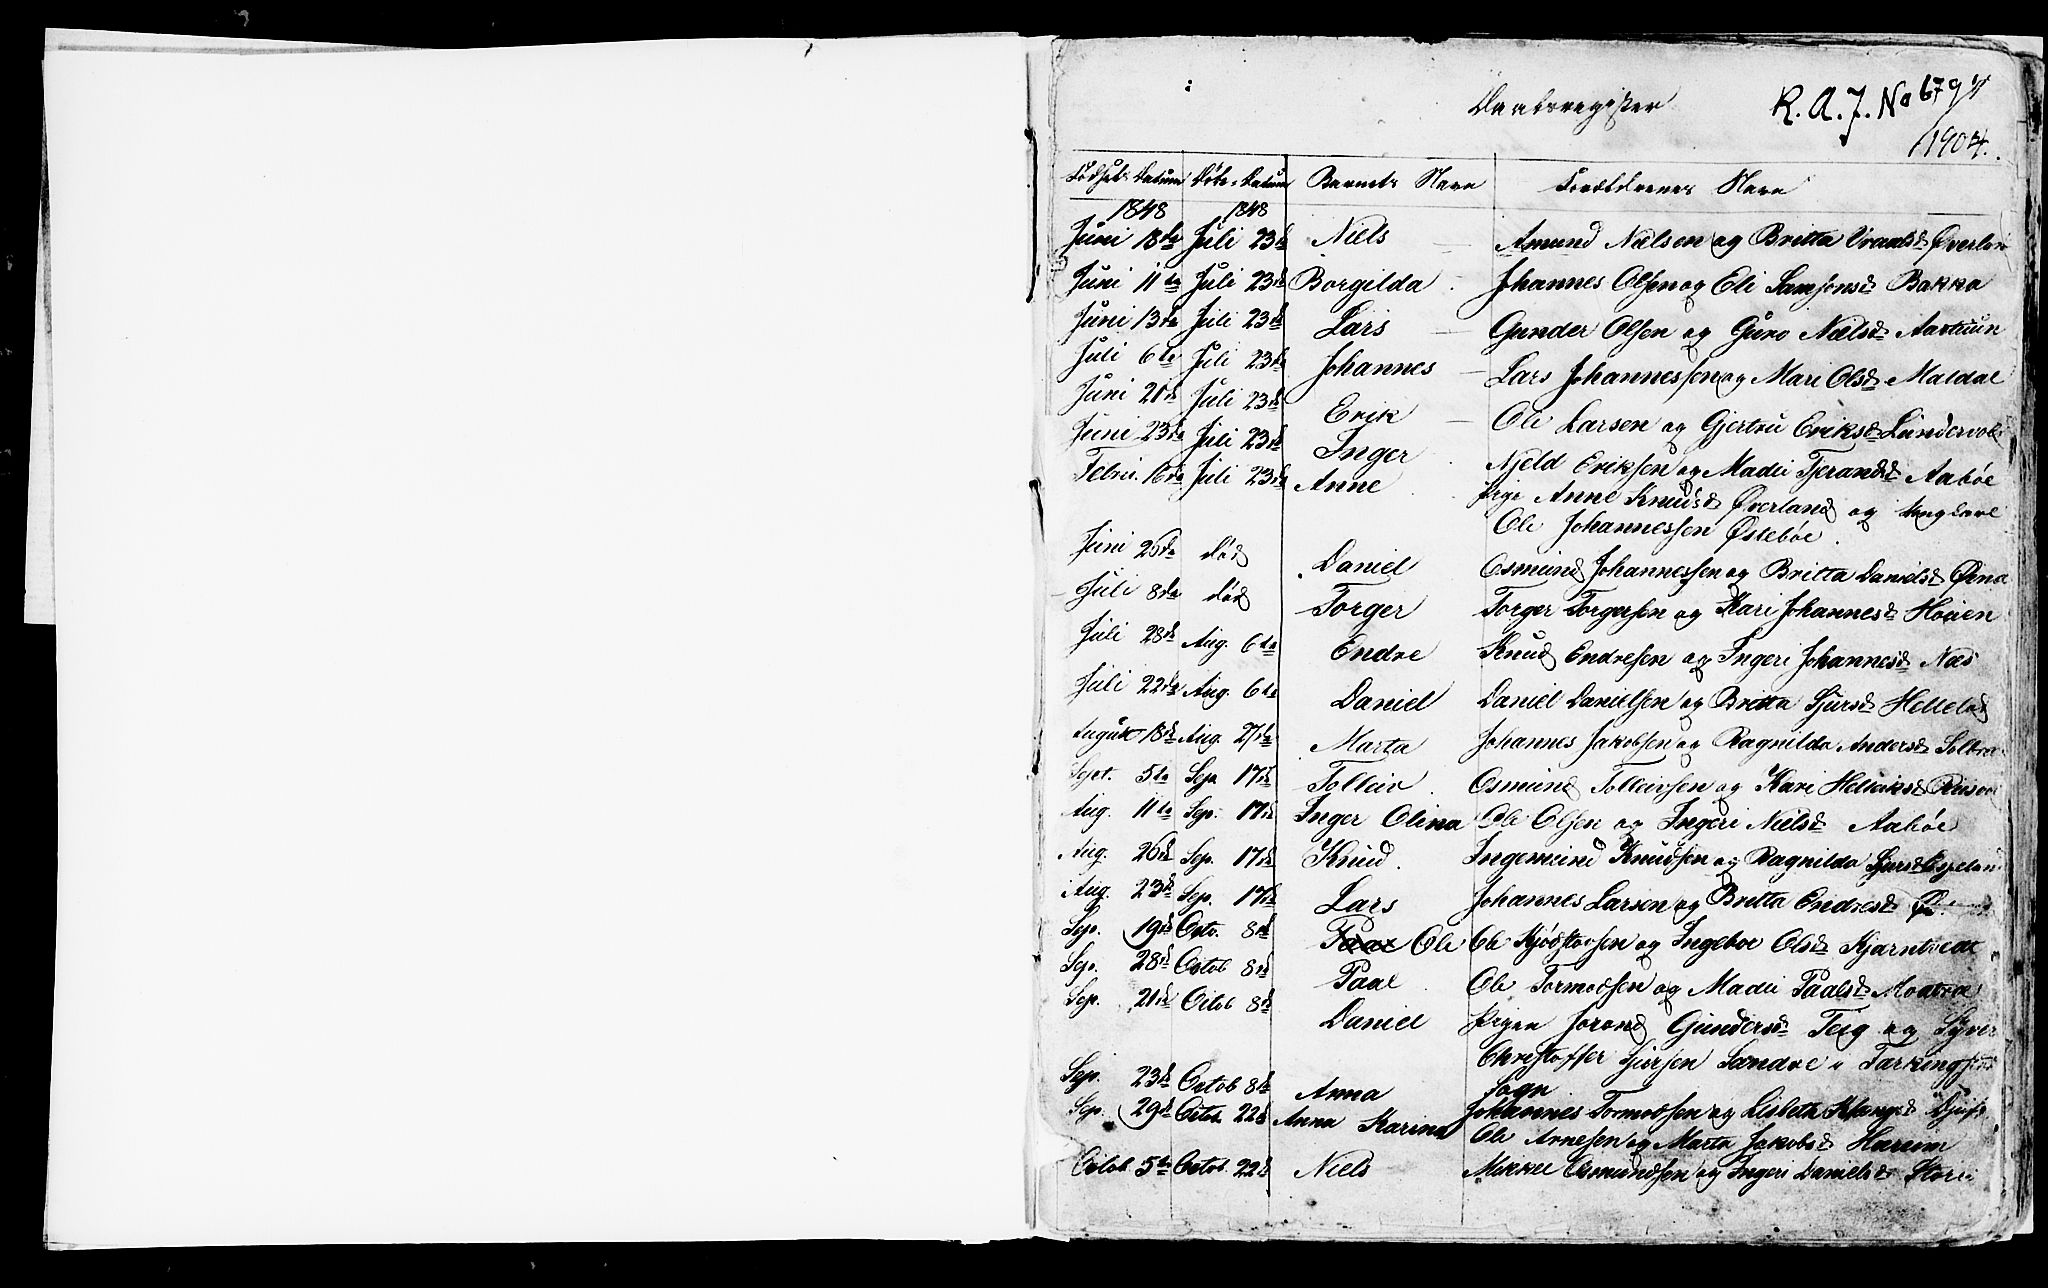 Daabsregister R. A. J. No
1904.
Fødsels Datum Døbe Datum Barnets Navn Forældrenes Navn
1848 1848
Juni 18de Juli 23d Niels Amund Nielsen og Britta Vraalsd
Juni 11te Juli 23d Borgilda Johannes Olsen og Eli Samsonsd Bakka
Juni 13de Juli 23d Lars Gunder Olsen og Guro Nielsd Aartuun
Juli 6te Juli 23d Johannes Lars Johannessen og Mari Olsd Maldal
Juni 21d Juli 23d Erik Ole Larsen og Gjertru Eriksd Lundervold
Juni 23de Juli 23d Inger Njeld Eriksen og Madli Tjerandsd Aabøe
Febru. 16de Juli 23de Anne Pige Anne Knudsd Øverland og Ungkarl
Ole Johannessen Østebøe
Juni 25de død Daniel Osmund Johannessen og Britta Danielsd Øina
Juli 8de død Torger Torger Torgersen og Kari Johannesd Høien
Juli 28de Aug. 6te Endre Knud Endresen og Ingeri Johannesd Næs
Juli 22de Aug. 6te Daniel Daniel Danielsen og Britta Sjursd Helleland
August 18de Aug. 27de Marta Johannes Jakobsen og Ragnilda Andersd
Sept. 5te Sep 17de Tolleiv Osmund Tolleivsen og Kari Helliksd
Aug. 11te Sep. 17de Inger Olina Ole Olsen og Ingeri Nielsd Aabøe
Aug. 26de Sep. 17de Knud Ingemund Knudsen og Ragnilda Sjursd Espeland
Aug. 23de Sep. 17de Lars Johannes Larsen og Britta Endresd
Sep. 19de Octo. 8de Ole Ole Kjødstovsen og Ingebor Olsd
Sep. 28de Octob 8de Paal Ole Tormodsen og Madli Paalsd
Sep. 21de Octob 8d Daniel Pigen Jorond Gundersd Teig og Syver
Christoffer Sjursen Sandve i
Sogn
Sep. 23de Octob 8de Anna Johannes Tormodsen og Lisbeta
Sep. 29de Octob. 22d Anna Karina Ole Arnesen og Marta Jakobsd
Octob. 5te Octob. 22d Niels Mikkel Osmundsen og Ingeri Danielsd